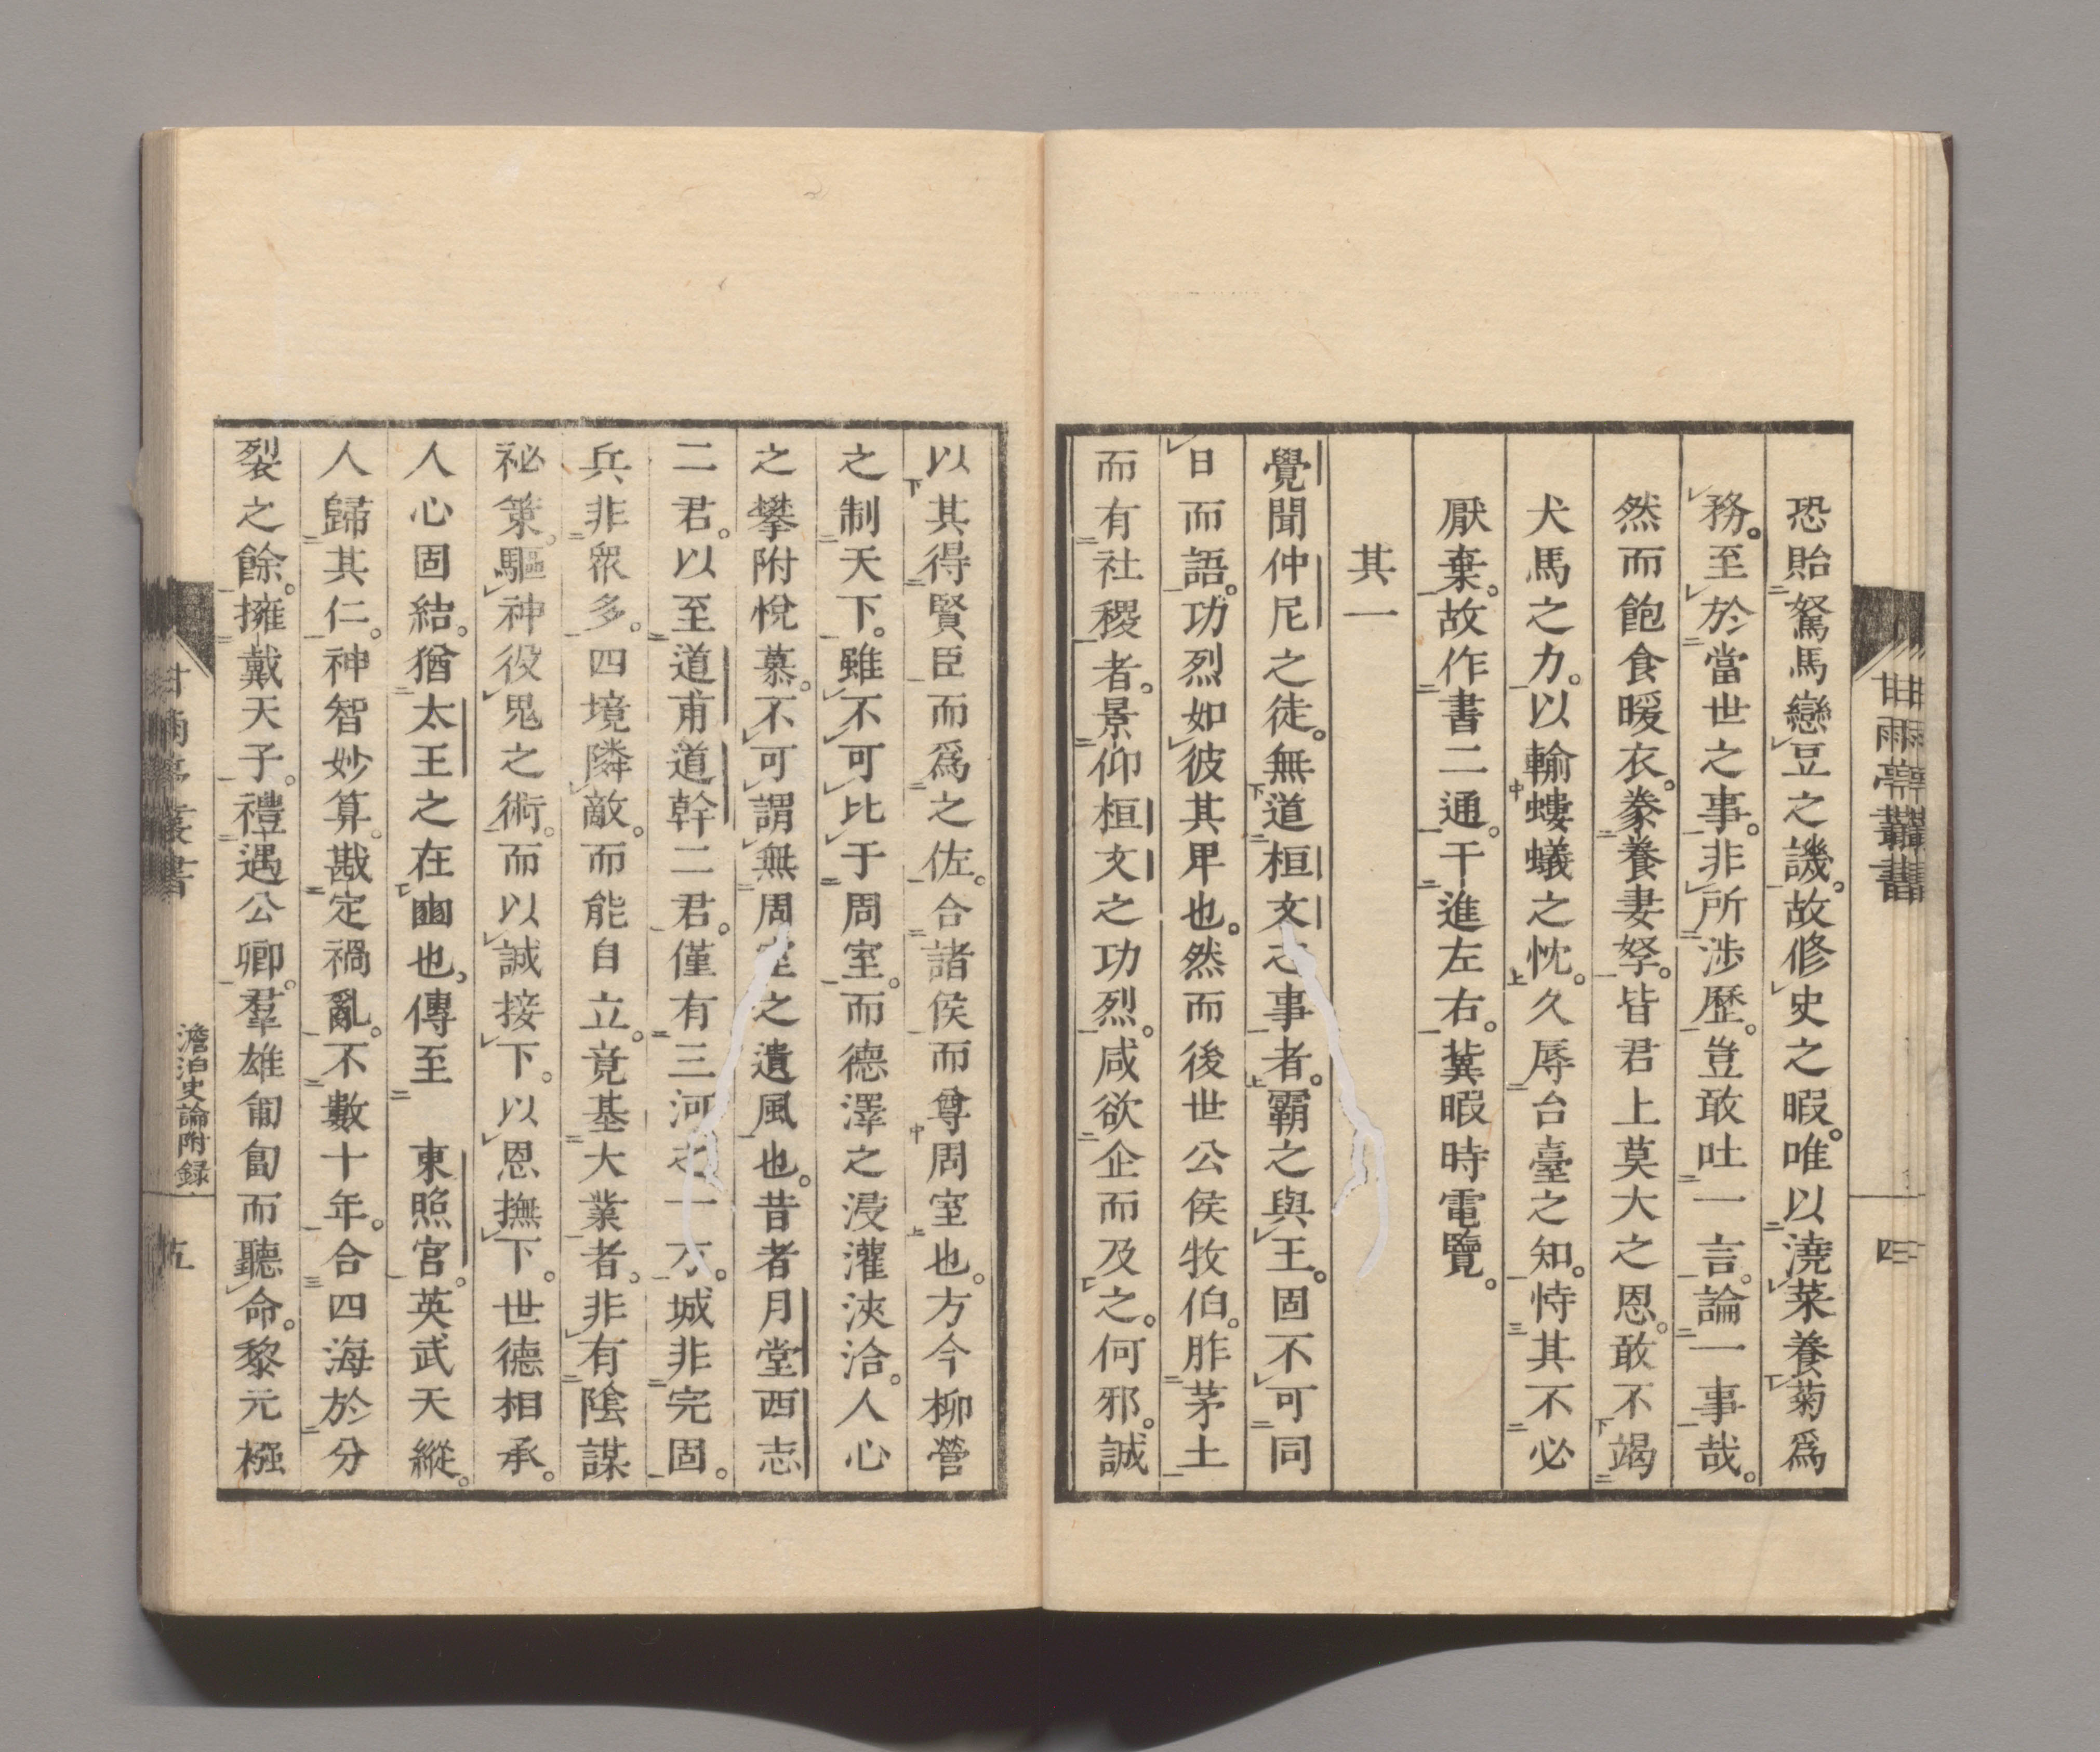 甘雨亭叢書
四
恐貽駑馬戀豆之譏。故修史之暇。唯以澆菜養菊爲
務。至於當世之事。非所涉歷。豈敢吐一言。論一事哉。
然而飽食暖衣。豢養妻孥。皆君上莫大之恩。敢不竭
犬馬之力。以輸螻蟻之忱。久辱台臺之知。恃其不必
厭棄。故作書二通。干進左右。冀暇時電覽。
其一
覺聞仲尼之徒。無道桓文之事者。霸之與王。固不可同
日而語。功烈如彼其卑也。然而後世公侯牧伯。胙茅土
而有社稷者。景仰桓文之功烈。咸欲企而及之。何邪。誠
以其得賢臣而爲之佐。合諸侯而尊周室也。方今柳營
之制天下。雖不可比于周室。而德澤之浸灌浹洽。人心
之攀附悅慕。不可謂無周室之遺風也。昔者月堂西志
二君。以至道甫道幹二君。僅有三河之一方。城非完固。
兵非衆多。四境隣敵。而能自立。竟基大業者。非有陰謀
祕策。驅神役鬼之術。而以誠接下。以恩撫下。世德相承。
人心固結。猶太王之在豳也。傳至　東照宮。英武天縱。
人歸其仁。神智妙算。戡定禍亂。不數十年。合四海於分
裂之餘。擁戴天子。禮遇公卿。羣雄匍匐而聽命。黎元襁
甘雨亭叢書
澹泊史論附録
五